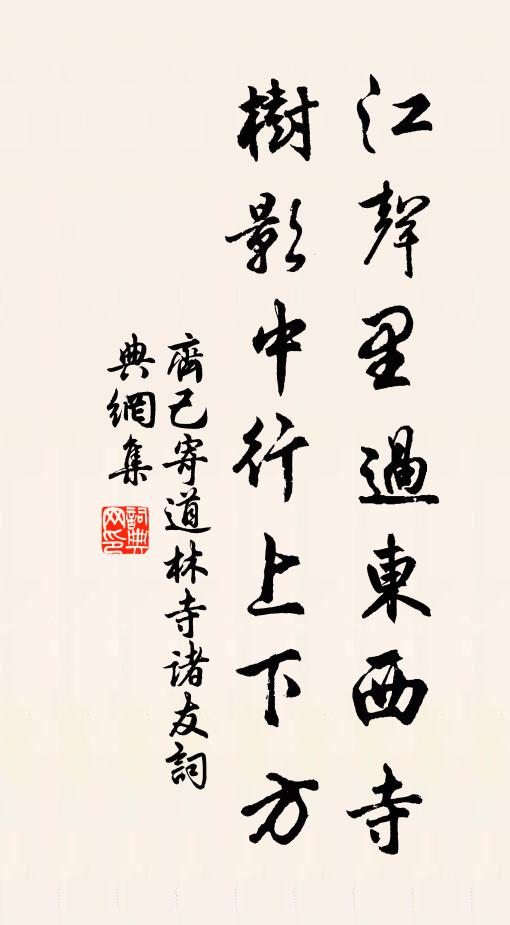 江聲里過東西寺
樹影中行上下方
齊己寄道林寺諸友詞
典網集
詞典
网印